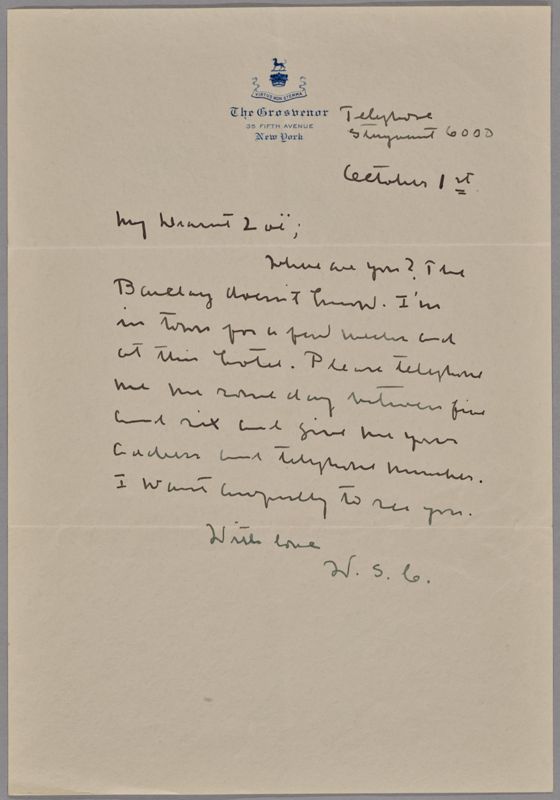 VIRTUS NON STEMMA
The Grosvenor
35 FIFTH AVENUE
New York
Telephone
Stuyvesant 6000
October 1st
My Dearest Zoë;
Where are you? The
Barclay doesn't know. I'm
in town for a few weeks and
at this hotel. Please telephone
me me some day between five
and six and give me your
address and telephone number.
I want awfully to see you.
With love
W. S. C.